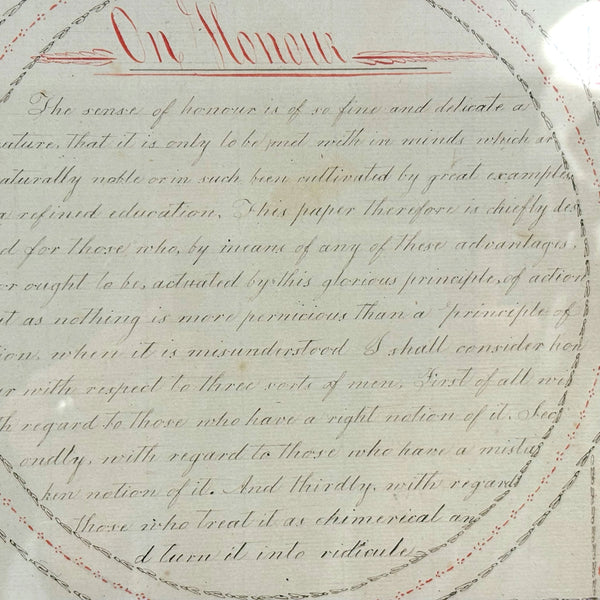 On Honour
The sense of honour is of so fine and delicate a
nature, that it is only to be met with in minds which ar
naturally noble or in such been cultivated by great examples
a refined education. This paper therefore is chiefly des
d for those who, by means of any of these advantages,
or ought to be, actuated by this glorious principle, of action
ut as nothing is more pernicious than a principle of
tion, when it is misunderstood I shall consider hon
ur with respect to three sorts of men. First of all wi
th regard to those who have a right notion of it. Sec
ondly, with regard to those who have a mista
ken notion of it. And thirdly, with regard
those who treat it as chimerical an
d turn it into ridicule